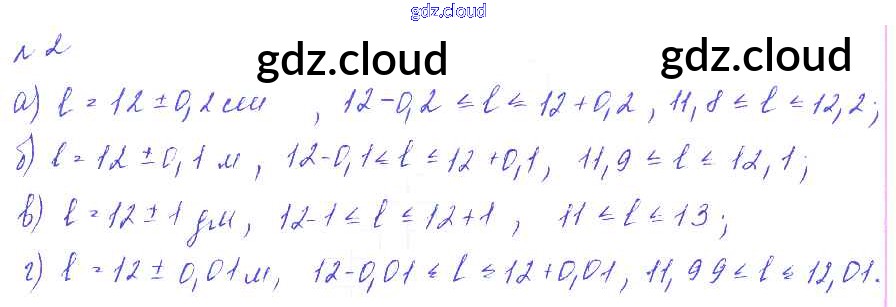 gdz.cloud
№ 2
gdz.cloud gdz.cloud
а) ℓ = 12 ± 0,2 см, 12-0,2 ≤ ℓ ≤ 12+0,2, 11,8 ≤ ℓ ≤ 12,2;
б) ℓ = 12 ± 0,1 м, 12-0,1 ≤ ℓ ≤ 12+0,1, 11,9 ≤ ℓ ≤ 12,1;
в) ℓ = 12 ± 1 дм, 12-1 ≤ ℓ ≤ 12+1, 11 ≤ ℓ ≤ 13;
г) ℓ = 12 ± 0,01 м, 12-0,01 ≤ ℓ ≤ 12+0,01, 11,99 ≤ ℓ ≤ 12,01.